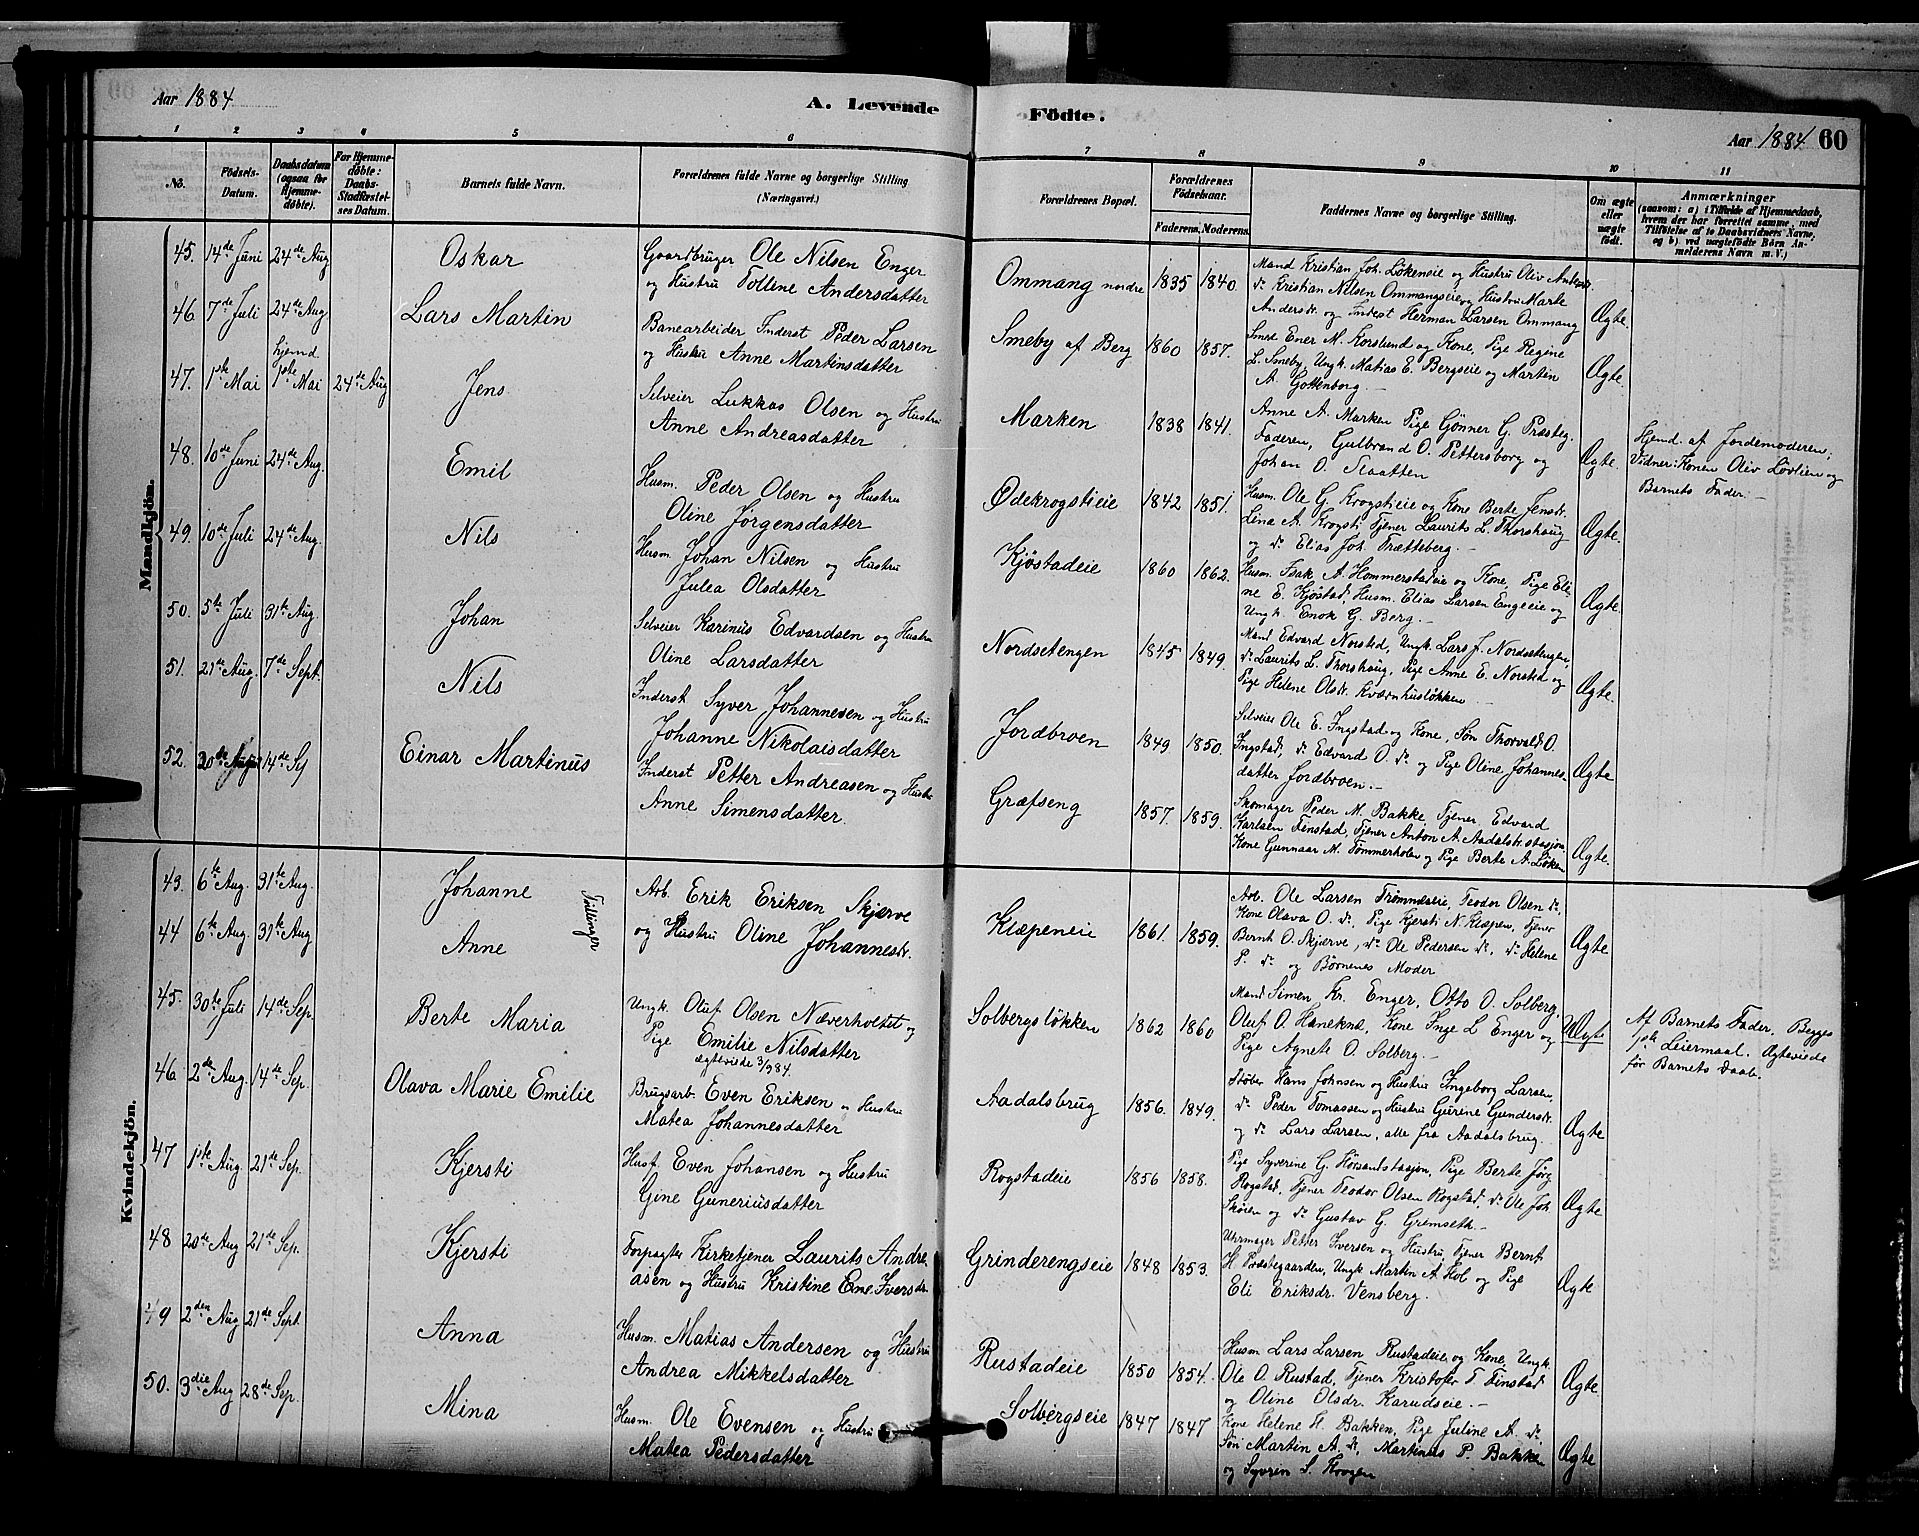 Aar 1884
A. Levende
Födte.
Aar 1884 60
1 2 3 4 5 6
7 8 9 10 11
No.
Födsels-
Datum.
Daabsdatum
(ogsaa for
Hjemme-
döbte).
For Hjemme-
döbte:
Daabs-
Stadfæstel-
ses Datum.
Barnets fulde Navn.
Forældrenes fulde Navne og borgerlige Stilling
(Næringsvei.)
Forældrenes Bopæl.
Forældrenes
Födselsaar.
Faderens. Moderens.
Faddernes Navne og borgerlige Stilling.
Om ægte
eller
uægte
födt.
Anmærkninger
(saasom: a) i Tilfælde af Hjemmedaab,
hvem der har forrettet samme, med
Tilföielse af to Daabsvidners Navne,
og b) ved uægtefödte Börn An-
melderens Navn m. V.)
Mandkjön.
45. 14de Juni 24de Aug Oskar
Gaardbruger Ole Nilsen Enger
og Hustru Tolline Andersdatter
Ommang nordre 1835 1840.
Mand Kristian Joh. Lökeneie og Hustru Oliv
do Kristian Nilsen Ommangseie og Hustru Marte
Andersdr. og Inderst Herman Larsen Ommang
Ægte.
46 7de Juli 24de Aug. Lars Martin
Banearbeider Inderst Peder Larsen
og Hustru Anne Martinsdatter
Smeby af Berg 1860 1857.
Smed Ener M. Korslund og Kone, Pige Regine
L. Smeby, Ungk. Matias E. Bergseie og Martin
A. Gottenborg.
Ægte.
47. 1ste Mai hjemd. 1ste Mai 24de Aug Jens
Selveier Lukkas Olsen og Hustru
Anne Andreasdatter
Marken 1838 1841.
Anne A. Marken Pige Gönner G. Præsteg.
Faderen, Gulbrand O. Pettersborg og
Johan O. Staatten
Ægte.
Hjemd. af Jordemoderen;
Vidner: Konen Oliv Lövlien og
Barnets Fader.
48. 10de Juni 24de Aug. Emil
Husm. Peder Olsen og Hustru
Oline Jörgensdatter
Ødekrogstieie 1842 1851.
Husm. Ole G. Krogstieie og Kone Berte Jensdr.
Lina A. Krogsti Tjener Laurits L. Thorshaug
og do Elias Joh. Trætteberg.
Ægte.
49. 10de Juli 24de Aug. Nils
Husm. Johan Nilsen og Hustru
Julea Olsdatter
Kjöstadeie 1860 1862.
Husm. Isak A. Hommerstadeie og Kone, Pige Eli-
ne E. Kjöstad, Husm. Elias Larsen Engeeie og
Ungk. Enok G. Berg.
Ægte.
50. 5te Juli 31te Aug. Johan
Selveier Karinus Edvardsen og Hustru
Oline Larsdatter
Nordsetengen 1845 1849.
Mand Edvard Norsted, Ungk. Lars J. Nordsetengen,
do Laurits L. Thorshaug, Pige Anne E. Norsted og
Pige Helene Olsdr. Kværnhuslökken
Ægte.
51. 21de Aug. 7de Sept. Nils
Inderst Syver Johannesen og Hustru
Johanne Nikolaisdatter
Jordbroen 1849 1850.
Selveier Ole E. Ingstad og Kone, Sön Thorvald O.
Ingstad, do Edvard O. do og Pige Oline Johannes-
datter Jordbroen.
Ægte
52. 20de 14de Einar Martinus
Inderst Petter Andreasen og Hustru
Anne Simensdatter.
Græfseng 1857. 1859.
Skomager Peder M. Bakke, Tjener Edvard
Karlsen Finstad, Tjener Anton A. Aadalsbr. stasjon,
Kone Gunnaar M. Tømmerholen og Pige Berte A. Löken
Ægte.
Kvindekjön.
43. 6te Aug. 31te Aug. Johanne
Tvillinger
44 6te Aug. 31te Aug Anne
Arb. Erik Eriksen Skjærve
og Hustru Oline Johannesdr.
Klæpeneie 1861. 1859.
Arb. Ole Larsen Trömnæseie, Teodor Olsen do,
Kone Olava O. do, Pige Kjersti N. Klæpen, Tjener
Bernt O. Skjærve, do Ole Pedersen do, do Helene
P. do og Börnenes Moder
Ægte
45. 30te Juli 14de Sep. Berte Maria
Ungk. Oluf Olsen Næverholtet og
Pige Emilie Nilsdatter
ægteviede 3/9 84.
Solbergslökken 1862 1860
Mand Simen Kr. Enger, Otto O. Solberg,
Oluf O. Haneknæ, Kone Inge L Enger og
Pige Agnete O. Solberg.
Uægte
Af Barnets Fader, Begges
1ste Leiermaal. Ægteviede
för Barnets Daab.
46. 2de Aug. 14de Sep. Olava Marie Emilie
Brugsarb. Even Eriksen og Hustru
Matea Johannesdatter
Aadalsbrug 1856. 1849.
Stöber Hans Johnsen og Hustru Ingeborg Larsen,
do Peder Tomassen og Hustru Gurine Gundersdr.
og do Lars Larsen, alle fra Aadalsbrug.
Ægte
47 1ste Aug. 21de Sep. Kjersti
Husf. Even Johansen og Hustru
Gine Guneriusdatter
Rogstadeie 1856 1858.
Pige Syverine G. Hörsandstasjon, Pige Berte Jörg
Rogstad, Tjener Teodor Olsen Rogstad, do Ole Joh.
Skøien og do Gustav G. Gremseth.
Ægte
48 20de Aug 21de Sep. Kjersti
Forpagter Kirketjener Laurits Andre-
asen og Hustru Kristine Eme. Iversdr.
Grinderengseie 1848 1853.
Uhrmager Petter Iversen og Hustru, Tjener Bernt
H. Præstegaarden, Ungk Martin A. Hol og Pige
Eli Eriksdr. Vensberg.
Ægte
49 2den Aug 21de Sept. Anna
Husm. Matias Andersen og Hustru
Andrea Mikkelsdatter
Rustadeie 1850 1854.
Husm Lars Larsen Rustadeie og Kone, Ungk.
Ole O. Rustad, Tjener Kristofer T. Finstad
og Oline Olsdr. Karudseie.
Ægte.
50. 3die Aug 28de Sep. Mina
Husm. Ole Evensen og Hustru
Matea Pedersdatter
Solbergseie 1847 1847
Kone Helene H. Bakken, Pige Juline A. do
Sön Martin A. do, Martinus P. Bakken
og Syvren S. Krogen
Ægte